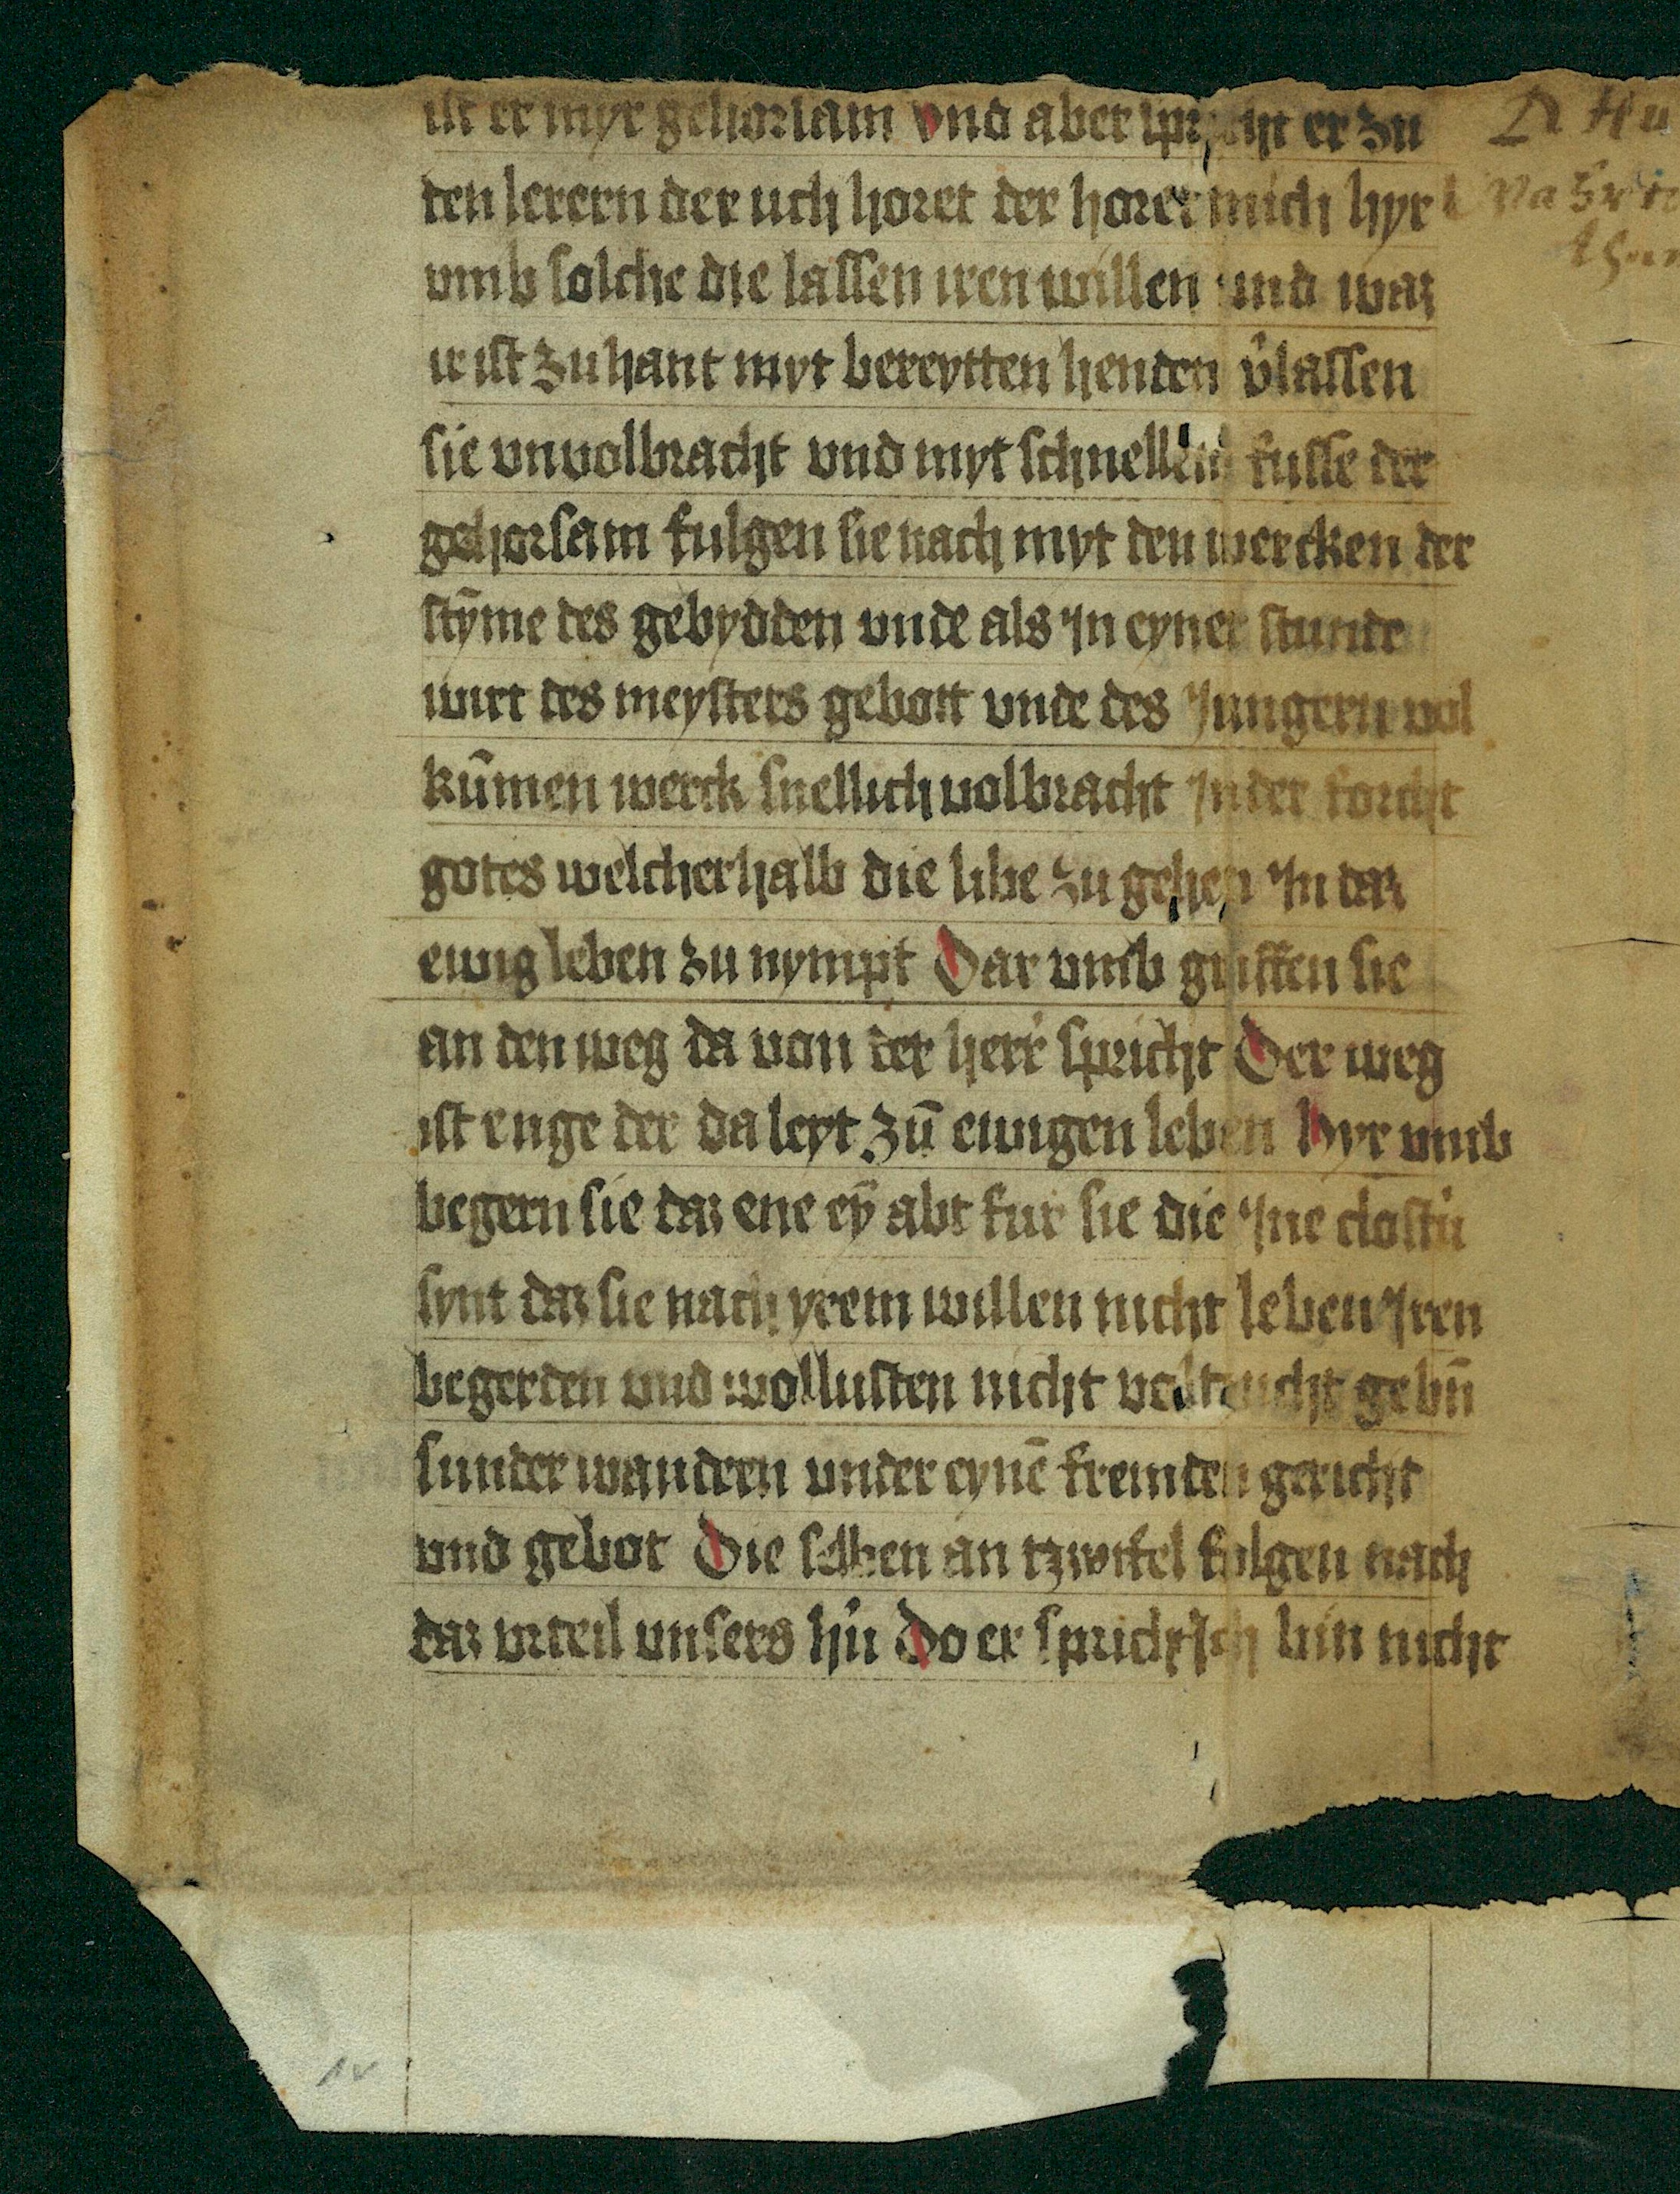 ist er myr gehorsam vnd aber spricht er zu
den lerern der uch horet der horet mich hyr
vmb solche die lassen iren willen vnd waz
ir ist zu hant myt bereytten henden v̾lassen
sie vnuolbracht vnd myt schnellem fusse der
gehorsam fulgen sie nach myt den wercken der
stym̄e des gebydden vnde als jn eyner stunde
wirt des meysters gebott vnde des jungern vol
kum̄en werck snellich volbracht jn der forcht
gotes welcherhalb die libe zu gehen jn daz
ewig leben zu nympt Dar vmb griffen sie
an den weg da von der herr spricht Der weg
ist enge der da leyt zū ewigen leben Hyr vmb
begern sie daz ene eȳ abt fur sie die jne clostn̾
synt daz sie nach yrem willen nicht leben jren
begerden vnd wollusten nicht voltzucht gebn̄
sunder wandren vnder eynē fremden gericht
vnd gebot Die selben an tzwifel folgen nach
daz vrteil vnsers hn̾ Do er spricht Ich bin nicht
1v